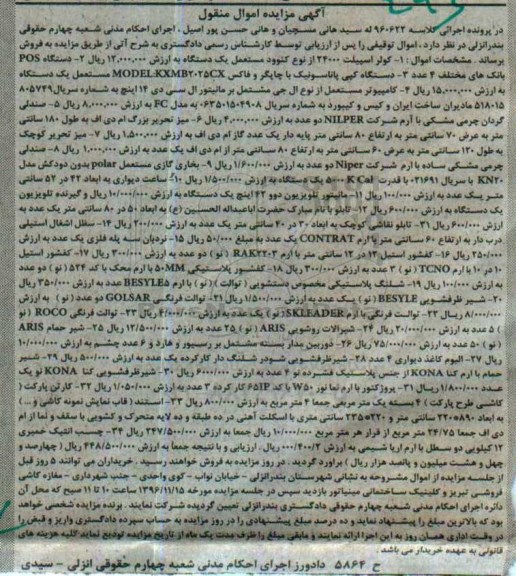 آگهی مزایده اموال منقول
در پرونده اجرائی کلاسه ۹۶۰۶۲۳ له سید هانی منسچیان و هانی حسن پور اصیل ، اجرای احکام مدنی شعبه چهارم حقوقی
بندرانزلی در نظر دارد ، اموال توقیفی را پس از ارزیابی توسط کارشناس رسمی دادگستری به شرح آتی از طریق مزایده به فروش
برساند . مشخصات اموال : ۱- کولر اسپیلت ۲۴۰۰۰ از نوع کنوود مستعمل یک دستگاه به ارزش ۱۲/۰۰۰/۰۰۰ ریال ۲- دستگاه POS
بانک های مختلف ۴ عدد ۳- دستگاه کپی پاناسونیک با چاپگر و فاکس MODEL:KXMB۲۰۲۵CX مستعمل یک دستگاه
به ارزش ۱۵/۰۰۰/۰۰۰ ریال ۴- کامپیوتر مستعمل از نوع ال جی مشتمل بر مانیتور ال سی دی ۱۴ اینچ به شماره سریال ۸۰۵۷۴۹
۵۱۸۰۱۵ مادیران ساخت ایران و کیس و کیبورد به شماره سریال ۰۶۳۵۰۱۵۰۴۹۰۸ به مدل FC به ارزش ۸/۰۰۰/۰۰۰ ریال ۵- صندلی
گردان چرمی مشکی با آرم شرکت NILPER دو عدد به ارزش ۴/۰۰۰/۰۰۰ ریال ۶- میز تحریر بزرگ ام دی اف به طول ۱۸۰ سانتی
متر به عرض ۷۰ سانتی متر به ارتفاع ۸۰ سانتی متر پایه دار یک عدد گاز ام دی اف به ارزش ۱/۵۰۰/۰۰۰ ریال ۷- میز تحریر کوچک
به طول ۱۳۰ سانتی متر به عرض ۶۰ سانتی متر به ارتفاع ۸۰ سانتی متر از ام دی اف یک عدد به ارزش ۱/۰۰۰/۰۰۰ ریال ۸- صندلی
چرمی مشکی ساده با آرم شرکت Niper دو عدد به ارزش ۱/۶۰۰/۰۰۰ ریال ۹- بخاری گازی مستعمل polar بدون دودکش مدل
KN۲۰ با سریال ۰۲۱۶۹۱ با قدرت ۵۰۰۰ K Cal یک دستگاه به ارزش ۱/۵۰۰/۰۰۰ ریال ۱۰- ساعت دیواری به ابعاد ۴۲ در ۵۲ سانتی
متر یک عدد به ارزش ۱۰۰/۰۰۰ ریال ۱۱- مانیتور تلویزیون دوو ۴۲ اینچ یک دستگاه به ارزش ۱۰/۰۰۰/۰۰۰ ریال و گیرنده تلویزیون
یک دستگاه به ارزش ۶۰۰/۰۰۰ ریال ۱۲- تابلو با نام مبارک حضرت اباعبداله الحسین (ع) به ابعاد ۵۰ در ۸۰ سانتی متر یک عدد به
ارزش ۶۰۰/۰۰۰ ریال ۱۳- تابلو نقاشی کوچک به ابعاد ۳۰ در ۴۰ سانتی متر یک عدد به ارزش ۲۰۰/۰۰۰ ریال ۱۴- سطل اشغال استیلی
درب دار به ارتفاع ۶۰ سانتی متر با آرم CONTRAT یک عدد به مبلغ ۵۰/۰۰۰ ریال ۱۵- نردبان سه پله فلزی یک عدد به ارزش
۲۵۰/۰۰۰ ریال ۱۶- کفشور استیل ۱۲ در ۱۲ سانتی متر با آرم RAK۲۲۰۳ ( نو ) دو عدد به ارزش ۳۰۰/۰۰۰ ریال ۱۷- کفشور استیل
۱۰ در ۱۰ با آرم TCNO ( نو ) ۳ عدد به ارزش ۳۰۰/۰۰۰ ریال ۱۸- کفشور پلاستیکی ۵۰MM با آرم محک با کد ۵۲۴ ( نو ) دو عدد
به ارزش ۱۰۰/۰۰۰ ریال ۱۹- شلنگ پلاستیکی مخصوص دستشویی ( توالت ) ( نو ) با آرم BESYLE ۵ عدد به ارزش ۳۵۰/۰۰۰ ریال
۲۰- شیر ظرفشویی BESYLE ( نو ) یک عدد به ارزش ۱/۵۰۰/۰۰۰ ریال ۲۱- توالت فرنگی GOLSAR دو عدد ( نو ) به ارزش
۸/۰۰۰/۰۰۰ ریال ۲۲- توالت فرنگی با آرم SKLEADER ( نو ) یک عدد به ارزش ۴/۰۰۰/۰۰۰ ریال ۲۳- توالت فرنگی ROCO ( نو )
۵ عدد به ارزش ۲۰/۰۰۰/۰۰۰ ریال ۲۴- شیرآلات روشویی ARIS ( نو ) ۲۵ عدد به ارزش ۱۲/۵۰۰/۰۰۰ ریال ۲۵- شیر حمام ARIS
( نو ) ۵۰ عدد به ارزش ۷۵/۰۰۰/۰۰۰ ریال ۲۶- دوربین مدار بسته مشتمل بر رسیور و هارد و ۶ عدد چشم به ارزش ۱۰/۰۰۰/۰۰۰
ریال ۲۷- آلبوم کاغذ دیواری ۴ عدد ۲۸- شیر ظرفشویی شودر شلنگ دار کارکرده یک عدد به ارزش ۵۰۰/۰۰۰ ریال ۲۹- شیر
حمام با آرم کنا KONA از جنس پلاستیک فشرده نو ۴ عدد به ارزش ۶۰۰/۰۰۰ ریال ۳۰- شیر ظرفشویی کنا KONA نو یک
عدد ۱/۸۰۰/۰۰۰ ریال ۳۱- پروژکتور با آرم نما نور ۷۵۰W با کد ۶۵IP کار کرده ۳ عدد به ارزش ۱/۰۵۰/۰۰۰ ریال ۳۲- کارتن پارکت (
کاشی طرح پارکت ) ۴ بسته یک متر مربعی جمعا ۴ متر مربع به ارزش ۸۰۰/۰۰۰ ریال ۳۳- استند ( قاب نمایش نمونه کاشی و ... )
به ابعاد ۸۹۰×۲۲۰ سانتی متر و ۲۲۰×۲۳۵ سانتی متری با اسکلت آهنی در ده طبقه و ده لایه متحرک و کشویی با سقف و نما از ام
دی اف جمعا ۲۴/۷۵ متر مربع از قرار هر متر مربع ۱۰/۰۰۰/۰۰۰ ریال جمعا به ارزش ۲۴۷/۵۰۰/۰۰۰ ریال ۳۴- چسب آنتیک خمیری
۱۲ کیلویی دو سطل با آرم اریا شیمی به ارزش ۴۰۰/۲/۰۰۰ ریال . ارزیابی و با نتیجه جمعا به ارزش ۴۴۸/۵۰۰/۰۰۰ ریال ( چهارصد و
چهل و هشت میلیون و پانصد هزار ریال ) برآورد گردید . در روز مزایده به فروش خواهند رسید . خریداران می توانند ۵ روز قبل
از جلسه مزایده از اموال مشروحه به نشانی شهرستان بندرانزلی - خیابان نواب - کوی واحدی - جنب شهرداری - مغازه کاشی
فروشی تبریز و کلینیک ساختمانی مینیاتور بازدید سپس در جلسه مزایده مورخه ۱۳۹۶/۱۱/۱۵ ساعت ۱۰ تا ۱۱ صبح که محل آن
دائره اجرای احکام مدنی شعبه چهارم حقوقی دادگستری بندرانزلی تعیین گردیده شرکت نمایند . برنده مزایده شخصی خواهد
بود که بالاترین مبلغ را پیشنهاد نماید و ده درصد مبلغ پیشنهادی را در روز مزایده به حساب سپرده دادگستری واریز و قبض را
در وقت اداری همان روز به این اجرا ارائه نمایند و مابقی مبلغ را ظرف مدت یک ماه از تاریخ مزایده تودیع نماید کلیه هزینه های
قانونی به عهده خریدار می باشد .
ح ۵۸۶۴ دادورز اجرای احکام مدنی شعبه چهارم حقوقی انزلی - سیدی